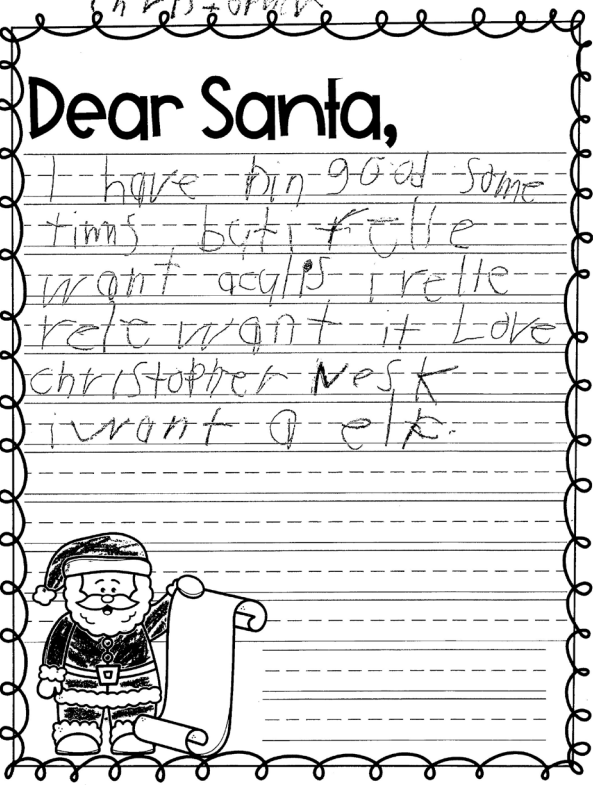 Christopher
Dear Santa,
I have bin good some
timns but i relle
want aculis i relle
rele want it Love
christopher Nesk
i want a elk.